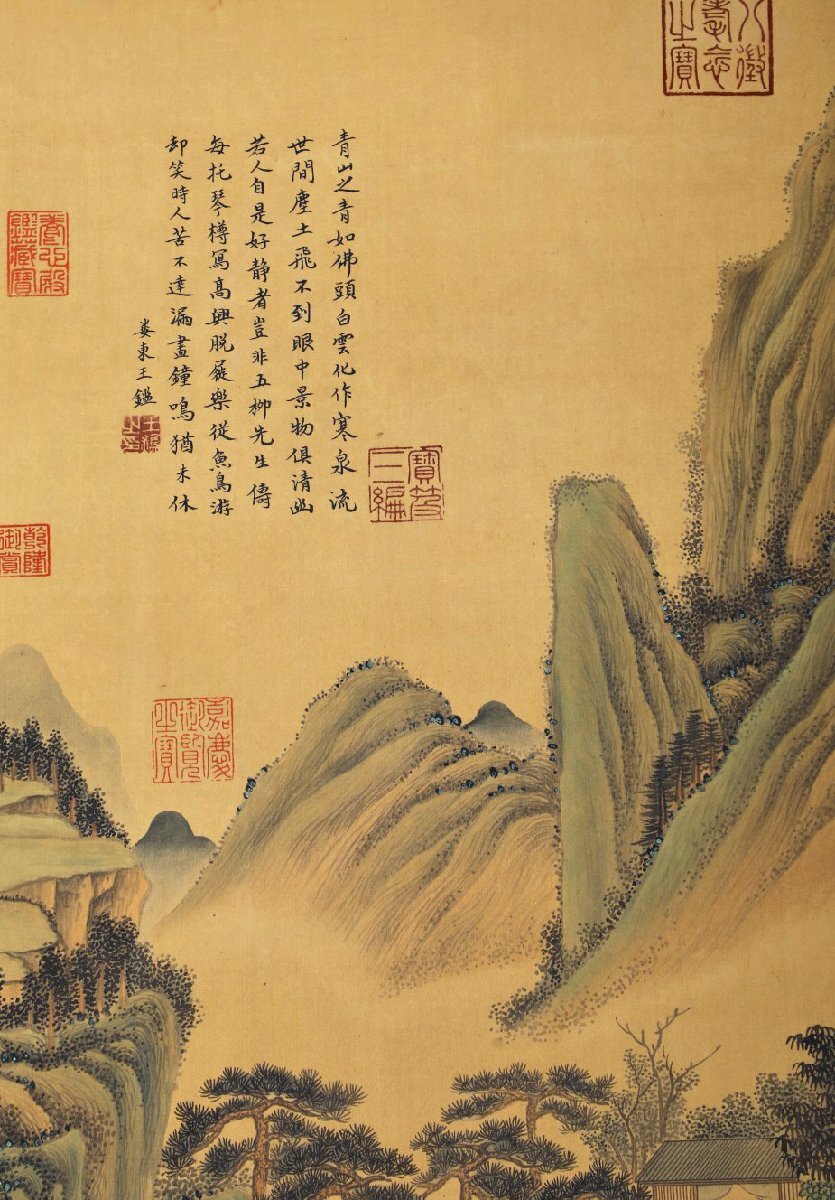 八徵
耄念
之寶
青山之青如佛頭白雲化作寒泉流
世間塵土飛不到眼中景物俱清幽
若人自是好静者豈非五柳先生儔
每托琴樽寫高興脱屣樂從魚鳥游
却笑時人苦不達漏盡鐘鳴猶未休
婁東王鑑
養心殿
鑑藏寶
寶笈
三編
乾隆
御賞
嘉慶
御覽
之寶